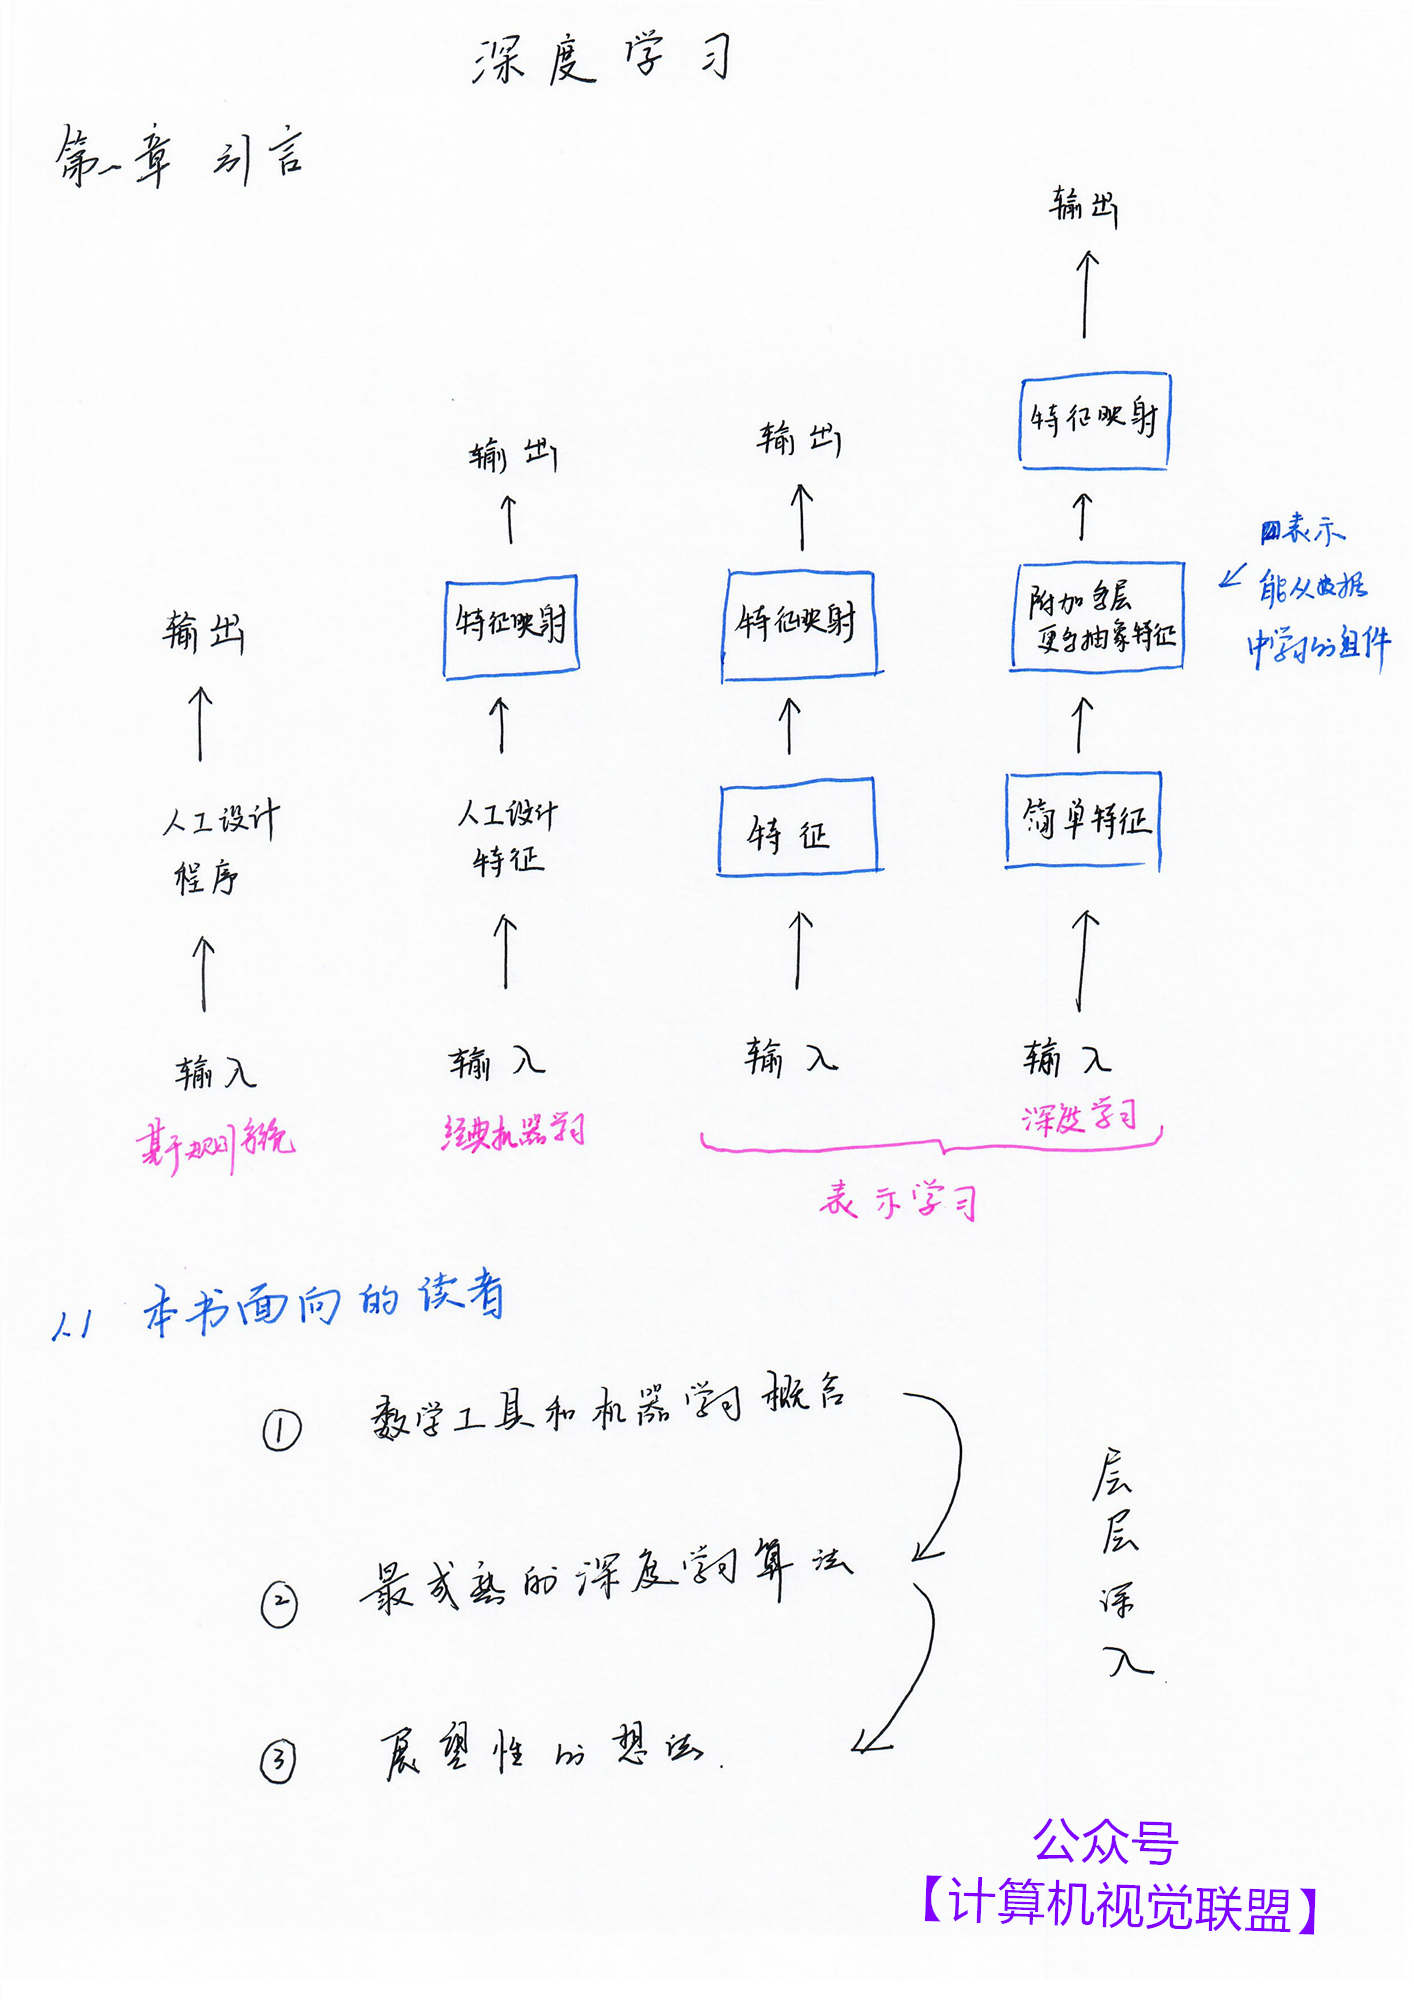 深度学习
第一章 引言
输出
↑
人工设计
程序
↑
输入
基于规则系统
输出
↑
特征映射
↑
人工设计
特征
↑
输入
经典机器学习
输出
↑
特征映射
↑
特征
↑
输入
输出
↑
特征映射
↑
附加多层
更多抽象特征
↑
简单特征
↑
输入
深度学习
表示学习
表示
能从数据
中学习的组件
1.1 本书面向的读者
① 数学工具和机器学习概念
② 最成熟的深度学习算法
③ 展望性的想法.
层
层
深
入
公众号
【计算机视觉联盟】